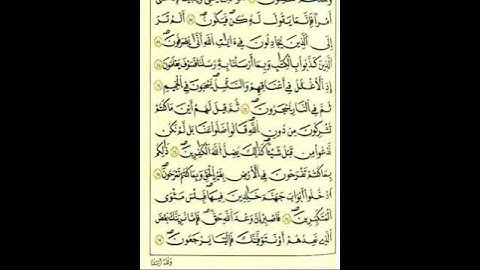 أَمْرًا فَإِنَّمَا يَقُولُ لَهُ كُنْ فَيَكُونُ ۝ أَلَمْ تَرَ
إِلَى الَّذِينَ يُجَادِلُونَ فِي ءَايَٰتِ اللَّهِ أَنَّىٰ يُصْرَفُونَ ۝
الَّذِينَ كَذَّبُوا بِالْكِتَٰبِ وَبِمَا أَرْسَلْنَا بِهِ رُسُلَنَا فَسَوْفَ يَعْلَمُونَ ۝
إِذِ الْأَغْلَٰلُ فِي أَعْنَاقِهِمْ وَالسَّلَٰسِلُ يُسْحَبُونَ ۝ فِي الْحَمِيمِ
ثُمَّ فِي النَّارِ يُسْجَرُونَ ۝ ثُمَّ قِيلَ لَهُمْ أَيْنَ مَا كُنْتُمْ
تُشْرِكُونَ ۝ مِنْ دُونِ اللَّهِ قَالُوا ضَلُّوا عَنَّا بَلْ لَمْ نَكُنْ
نَدْعُوا مِنْ قَبْلُ شَيْئًا كَذَٰلِكَ يُضِلُّ اللَّهُ الْكَٰفِرِينَ ۝ ذَٰلِكُمْ
بِمَا كُنْتُمْ تَفْرَحُونَ فِي الْأَرْضِ بِغَيْرِ الْحَقِّ وَبِمَا كُنْتُمْ تَمْرَحُونَ ۝
ادْخُلُوا أَبْوَٰبَ جَهَنَّمَ خَٰلِدِينَ فِيهَا فَبِئْسَ مَثْوَى
الْمُتَكَبِّرِينَ ۝ فَاصْبِرْ إِنَّ وَعْدَ اللَّهِ حَقٌّ فَإِمَّا نُرِيَنَّكَ بَعْضَ
الَّذِي نَعِدُهُمْ أَوْ نَتَوَفَّيَنَّكَ فَإِلَيْنَا يُرْجَعُونَ ۝